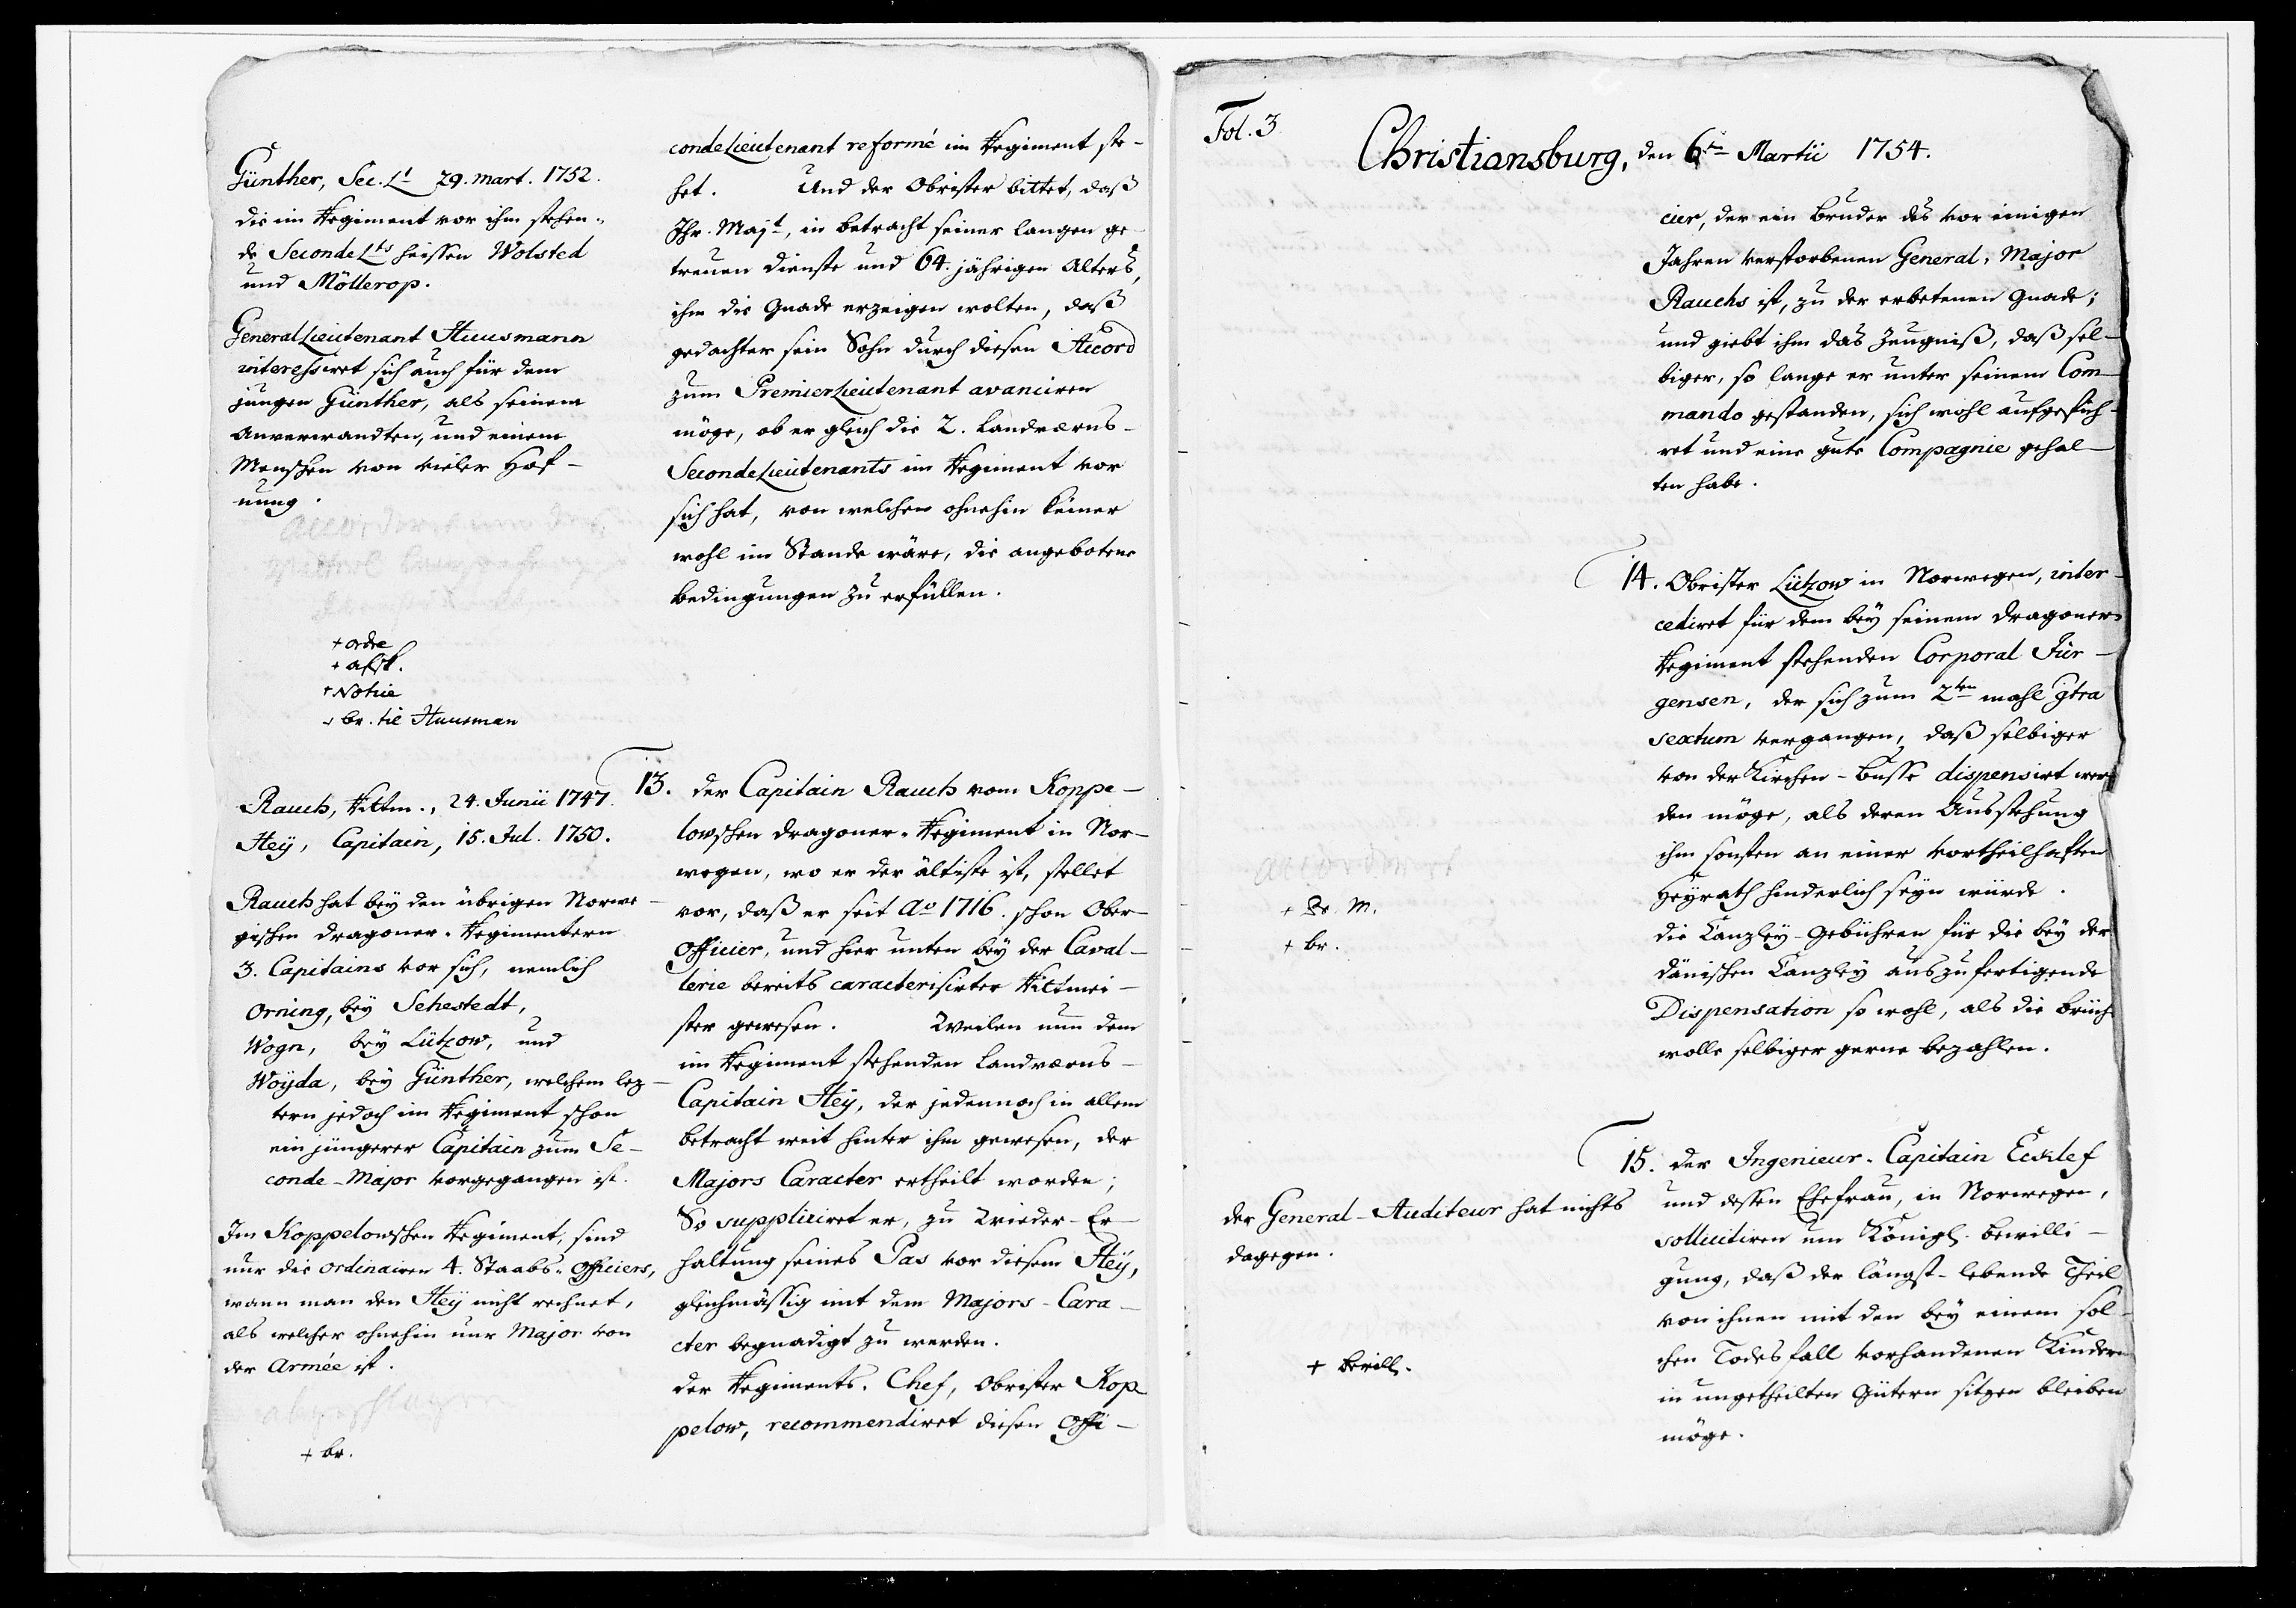 Günther, Sec. Lt 29. mart. 1752.
die im Regiment vor ihm stehen-
de Seconde Lts heissen Wolsted
und Möllerop.
GeneralLieutenant Huusmann
interessiret sich auch für dem
jungen Günther, als seinem
Anverwandten, und einem
Menschen von vieler Hof-
nung.
accordiret
+ ordre
+ afsk.
+ Notice
+ br. til Huusman
Rauch, Rittm., 24. Junii 1747.
Heÿ, Capitain, 15. Jul. 1750.
Rauch hat beÿ den übrigen Norwe-
gischen Dragoner-Regimentern
3. Capitains vor sich, nemlich
Orning, beÿ Sehestedt,
Wogn, beÿ Lützow, und
Woÿda, beÿ Günther, welchem lez-
tern jedoch im Regiment schon
ein jüngerer Capitain zum Se-
conde-Major vorgegangen ist.
Im Koppelowschen Regiment, sind
nur die ordinairen 4. Staabs-Officiers,
wann man den Heÿ nicht rechnet,
als welcher ohnehin nur Major von
der Armée ist.
abgeschlagen
+ br.
condeLieutenant reformé im Regiment ste-
het. Und der Obrister bittet, daß
Ihr. Majt, in betracht seiner langen ge-
treuen Dienste und 64. jährigen Alters,
ihm die Gnade erzeigen wolten, daß
gedachter sein Sohn durch diesen Accord
zum PremierLieutenant avanciren
möge, ob er gleich die 2. Landværns-
SecondeLieutenants im Regiment vor
sich hat, von welchen ohnehin keiner
wohl im Stande wäre, die angebotene
Bedingungen zu erfüllen.
13. Der Capitain Rauch vom Koppe-
lowschen Dragoner-Regiment in Nor-
wegen, wo er der ältiste ist, stellet
vor, daß er seit Ao 1716. schon Ober-
Officier, und hier unten beÿ der Caval-
lerie bereits caracterisirter Rittmei-
ster gewesen. Weilen nun dem
im Regiment stehenden Landværns-
Capitain Heÿ, der jedennoch in allem
betracht weit hinter ihm gewesen, der
Majors Caracter ertheilt worden;
So suppliciret er, zu Wieder-Er-
haltung seines Pas vor diesem Heÿ,
gleichmässig mit dem Majors-Cara-
cter begnadigt zu werden.
Der Regiments-Chef, Obrister Kop-
pelow, recommendiret diesen Offi-
Fol. 3
Christiansburg, den 6ten Martii 1754.
cier, der ein Bruder des vor einigen
Jahren verstorbenen General-Major
Rauchs ist, zu der erbetenen Gnade;
und giebt ihm das Zeugniß, daß sel-
biger, so lange er unter seinem Com-
mando gestanden, sich wohl aufgefüh-
ret und eine gute Compagnie gehal-
ten habe.
14. Obrister Lützow in Norwegen, inter-
cediret für dem beÿ seinem Dragoner-
Regiment stehenden Corporal Jür-
gensen, der sich zum 2ten mahl ctra
sextum vergangen, daß selbiger
von der Kirchen-Busse dispensirt wer-
den möge, als deren Ausstehung
ihm sonsten an einer vortheilhaften
Heÿrath hinderlich seÿn würde.
die Canzleÿ-Gebühren für die beÿ der
dänischen Canzleÿ auszufertigende
Dispensation so wohl, als die brüche
wolle selbiger gerne bezahlen.
accordiret
+ Pr. M.
+ br.
15. Der Ingenieur-Capitain Eckslef
und dessen Ehefrau, in Norwegen,
sollicitiren um Königl. bewilli-
gung, daß der längst-lebende Theil
von ihnen mit den beÿ einem sol-
chen Todesfall vorhandenen Kindern
in ungetheilten Gütern sitzen bleiben
möge.
der General-Auditeur hat nichts
dagegen.
+ bevill.